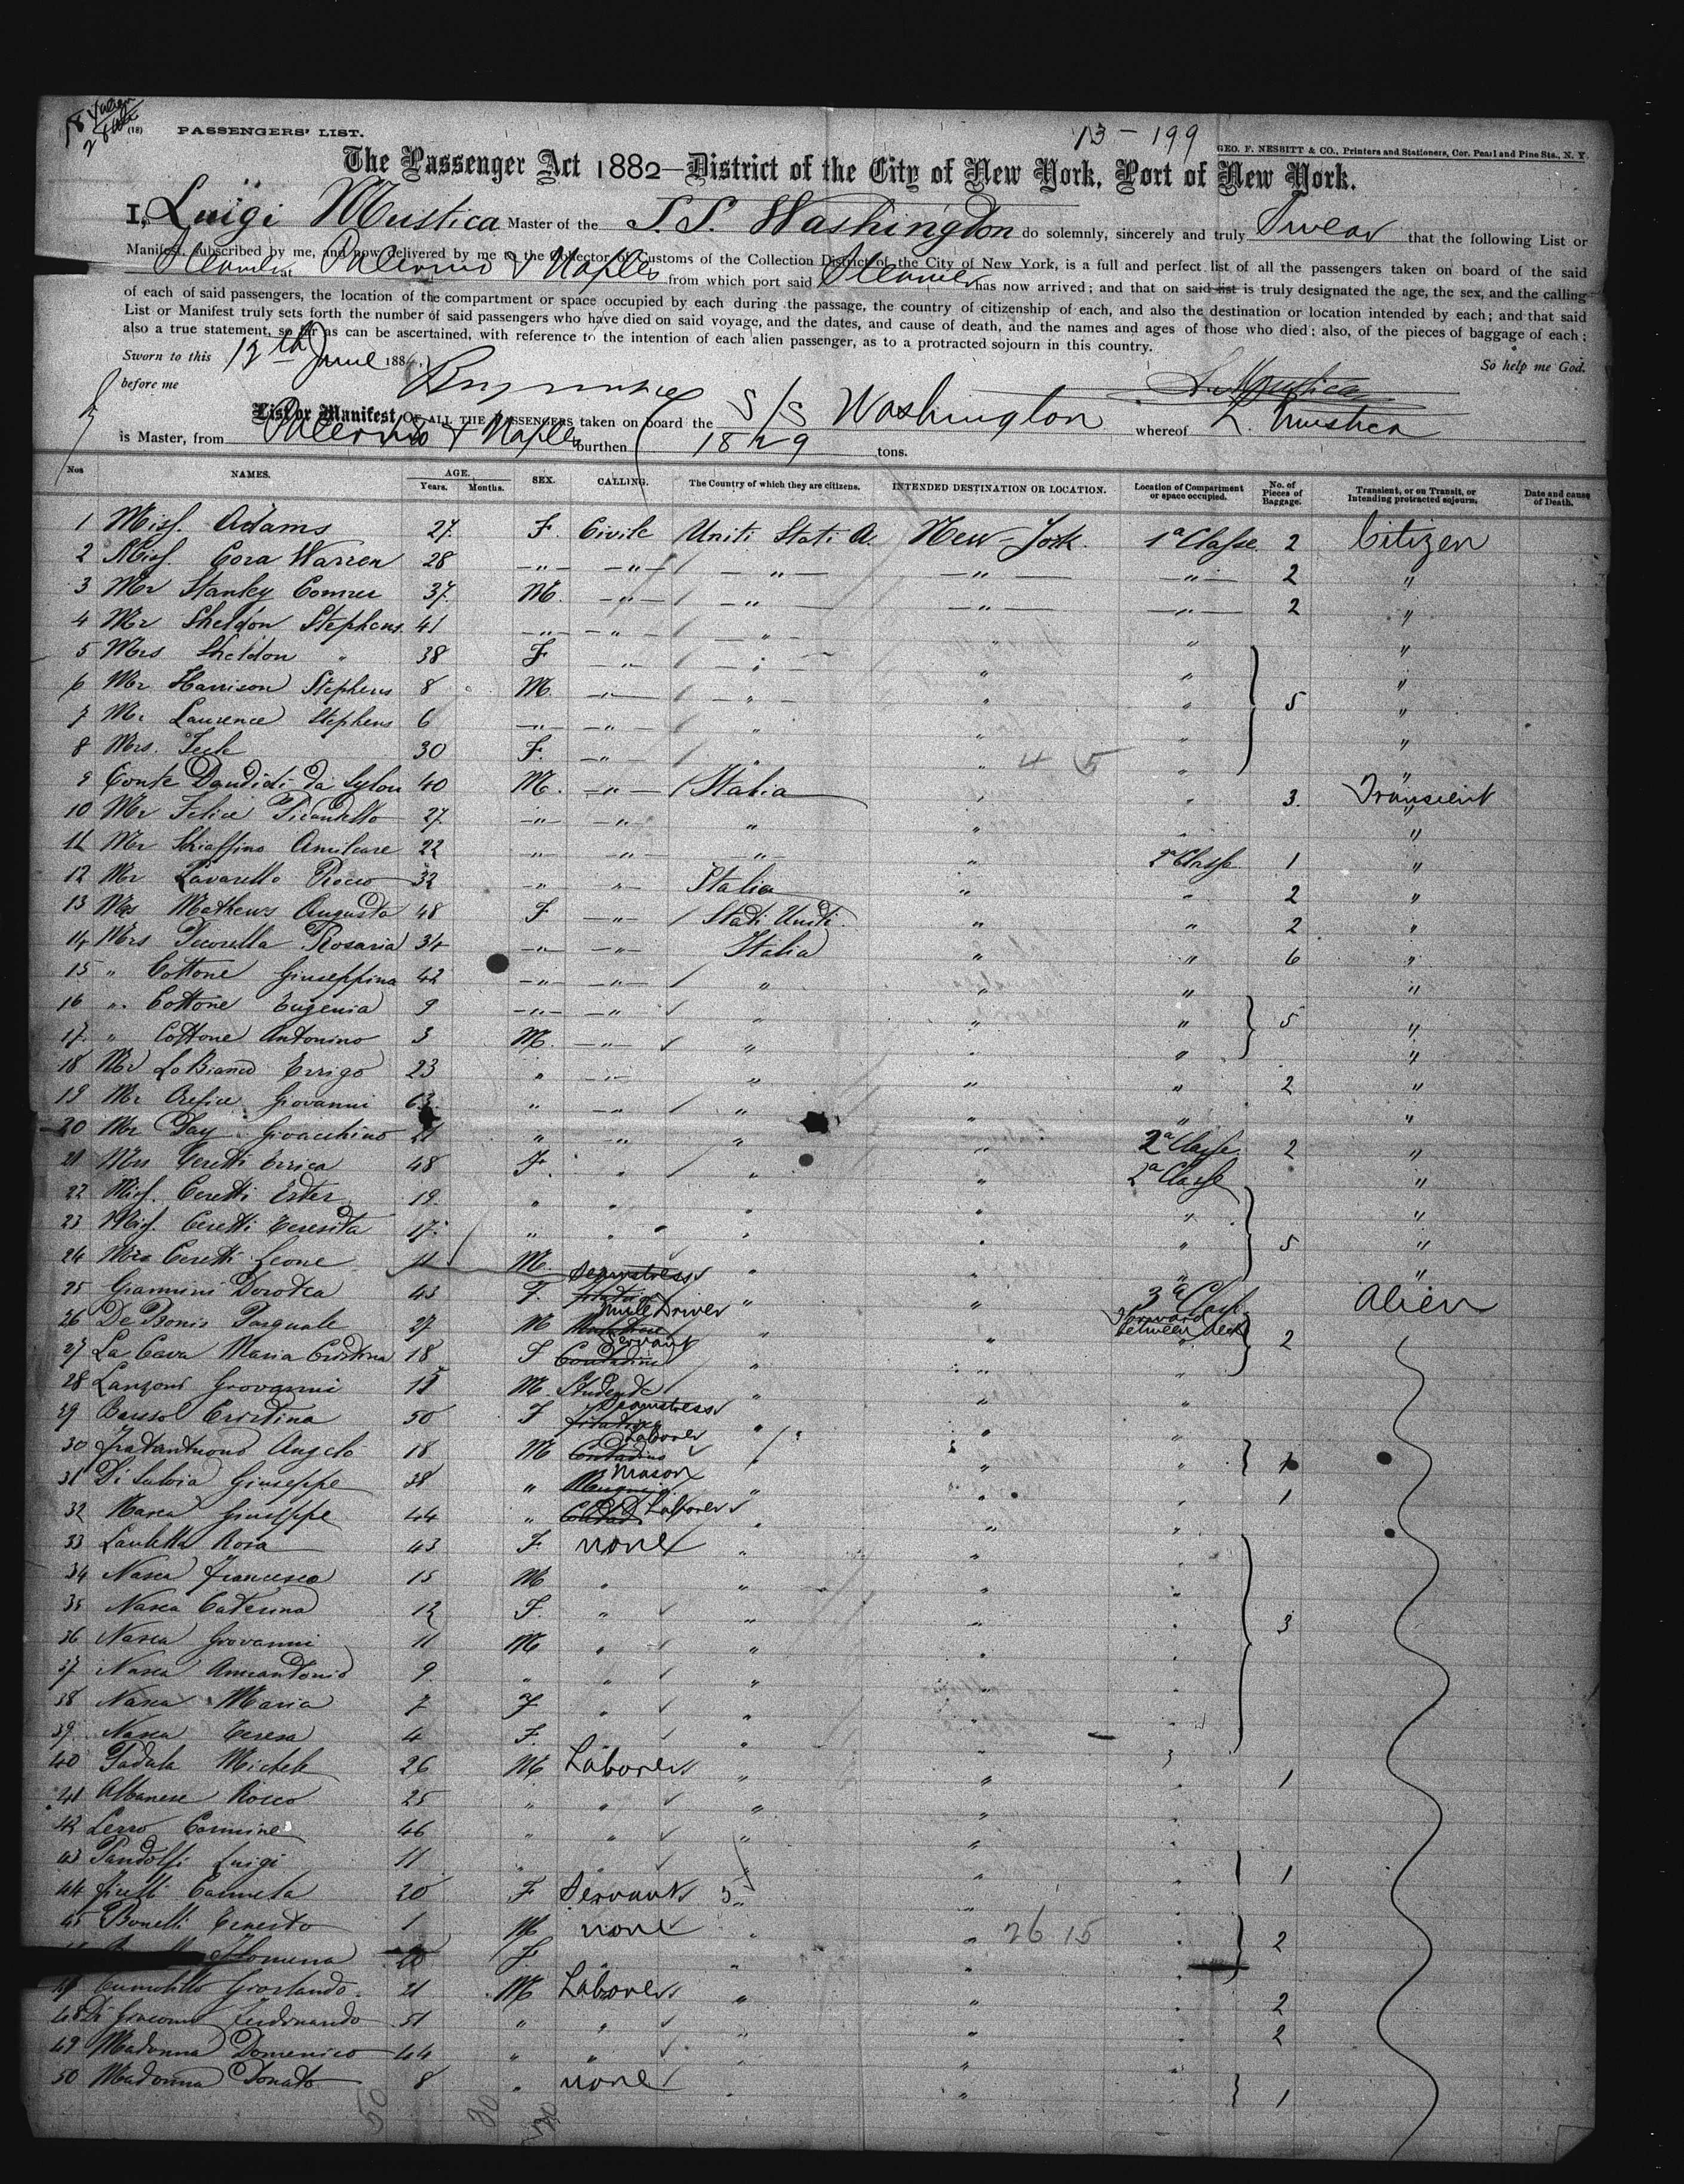 (18) PASSENGERS' LIST.
13 - 199
GEO. F. NESBITT & CO., Printers and Stationers, Cor. Pearl and Pine Sts., N. Y.
The Passenger Act 1882—District of the City of New York, Port of New York.
I, Luigi Mustica Master of the S.S. Washington do solemnly, sincerely and truly Swear that the following List or
Manifest, subscribed by me, and now delivered by me to the Collector of Customs of the Collection District of the City of New York, is a full and perfect list of all the passengers taken on board of the said
Steamer at Palermo & Naples from which port said Steamer has now arrived; and that on said list is truly designated the age, the sex, and the calling
of each of said passengers, the location of the compartment or space occupied by each during the passage, the country of citizenship of each, and also the destination or location intended by each; and that said
List or Manifest truly sets forth the number of said passengers who have died on said voyage, and the dates, and cause of death, and the names and ages of those who died; also, of the pieces of baggage of each;
also a true statement, so far as can be ascertained, with reference to the intention of each alien passenger, as to a protracted sojourn in this country.
So help me God.
Sworn to this 12th June 188
before me
L. Mustica
List or Manifest OF ALL THE PASSENGERS taken on board the S/S Washington whereof L. Mustica
is Master, from Palermo & Naples burthen 1829 tons.
Nos NAMES. AGE. Years. Months. SEX. CALLING. The Country of which they are citizens. INTENDED DESTINATION OR LOCATION. Location of Compartment or space occupied. No. of Pieces of Baggage. Transient, or on Transit, or Intending protracted sojourn. Date and cause of Death.
1 Miss. Adams 27 F. Civile Uniti Stati A. New-York. 1a Classe. 2 Citizen
2 Miss. Cora Warren 28 " " " " " 2 "
3 Mr Stanley 37 M. " " " " 2 "
4 Mr Sheldon Stephens 41 " " " " " "
5 Mrs Sheldon " 38 F " " " " "
6 Mr Harrison Stephens 8 M. " " " " 5 "
7 Mr Laurence Stephens 6 " " " " " "
8 Mrs. 30 F. " " " 4 5 " "
9 Conte 40 M. " Italia " " 3 Transient
10 Mr Felice 27 " " " " " "
11 Mr Schiaffino Amilcare 22 " " " " 2a Classe 1 "
12 Mr Lavarello Rocco 32 " " Italia " " 2 "
13 Mrs Mathews Augusta 48 F " Stati Uniti " " 2 "
14 Mrs Pecorella Rosaria 34 " " Italia " " 6 "
15 " Cottone Giuseppina 42 " " " " " "
16 " Cottone Eugenia 9 " " " " " 5 "
17 " Cottone Antonino 3 M. " " " " "
18 Mr Lo Bianco Errigo 23 " " " " " 2 "
19 Mr Orefice Giovanni 63 " " " " " "
20 Mr Gioacchino 21 " " " " 2a Classe 2 "
21 Mrs Ceretti Errica 48 F. " " " 2a Classe "
22 Miss. Ceretti Ester 19 " " " " " "
23 Miss. Ceretti Teresita 17 " " " " " 5 "
24 Ceretti Leone 11 M. " " " "
25 Giannini Dorotea 43 F. Seamstress " " 3a Classe Alien
26 De Bonis Pasquale 27 M Mule Driver " " Forward between deck 2
27 La Cava Maria Cristina 18 F Servant Contadina " " "
28 Giovanni M. Studente " " "
29 Cristina 50 F Seamstress " " "
30 Fratantuono Angelo 18 M Laborer Contadino " " " 1
31 Di Salvia Giuseppe 38 " Mason " " " 1
32 Nasca Giuseppe 44 " Laborer " " "
33 Lauletta Rosa 43 F none " " "
34 Nasca Francesco 15 M " " " "
35 Nasca Caterina 12 F. " " " " 3
36 Nasca Giovanni 11 M " " " "
37 Nasca 9 " " " " "
38 Nasca Maria 7 F " " " "
39 Nasca Teresa 4 F. " " " "
40 Padula Michele 26 M Laborer " " " 1
41 Albanese Rocco 25 " " " " "
42 Lerro Carmine 46 " " " " "
43 Pandolfi Luigi 11 " " " " " 1
44 Carmela 20 F Servant " " "
45 Bonelli Ernesto 1 M none " " 26 15 " 2
Filomena F. " " " "
47 21 M Laborer " " " 2
48 Di Giacomo Ferdinando 51 " " " " " 2
49 Madonna Domenico 44 " " " " "
50 Madonna Donato 8 " none " " " 1
50 30